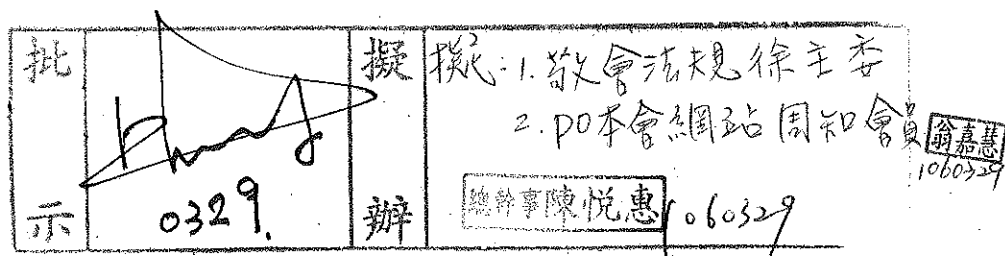 批示
0329.
擬辦
擬:1.敬會法規徐主委
2.PO本會網站周知會員
翁嘉慧
1060329
總幹事陳悅惠
1060329